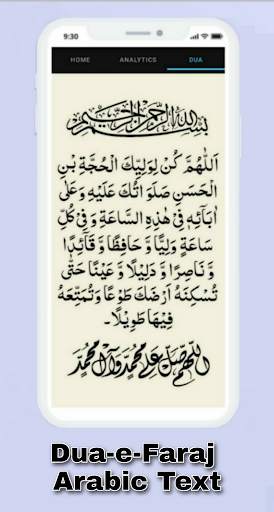 9:30
HOME ANALYTICS DUA
بِسْمِ اللهِ الرَّحْمٰنِ الرَّحِيْمِ
اَللّٰهُمَّ كُنْ لِوَلِيِّكَ الْحُجَّةِ بْنِ
الْحَسَنِ صَلَوَاتُكَ عَلَيْهِ وَعَلٰى
اٰبَائِهٖ فِيْ هٰذِهِ السَّاعَةِ وَ فِيْ كُلِّ
سَاعَةٍ وَلِيًّا وَّ حَافِظًا وَّ قَائِدًا
وَّ نَاصِرًا وَّ دَلِيْلًا وَّ عَيْنًا حَتّٰى
تُسْكِنَهُ اَرْضَكَ طَوْعًا وَتُمَتِّعَهُ
فِيْهَا طَوِيْلًا.
اللهم صل علی محمد وآل محمد
Dua-e-Faraj
Arabic Text